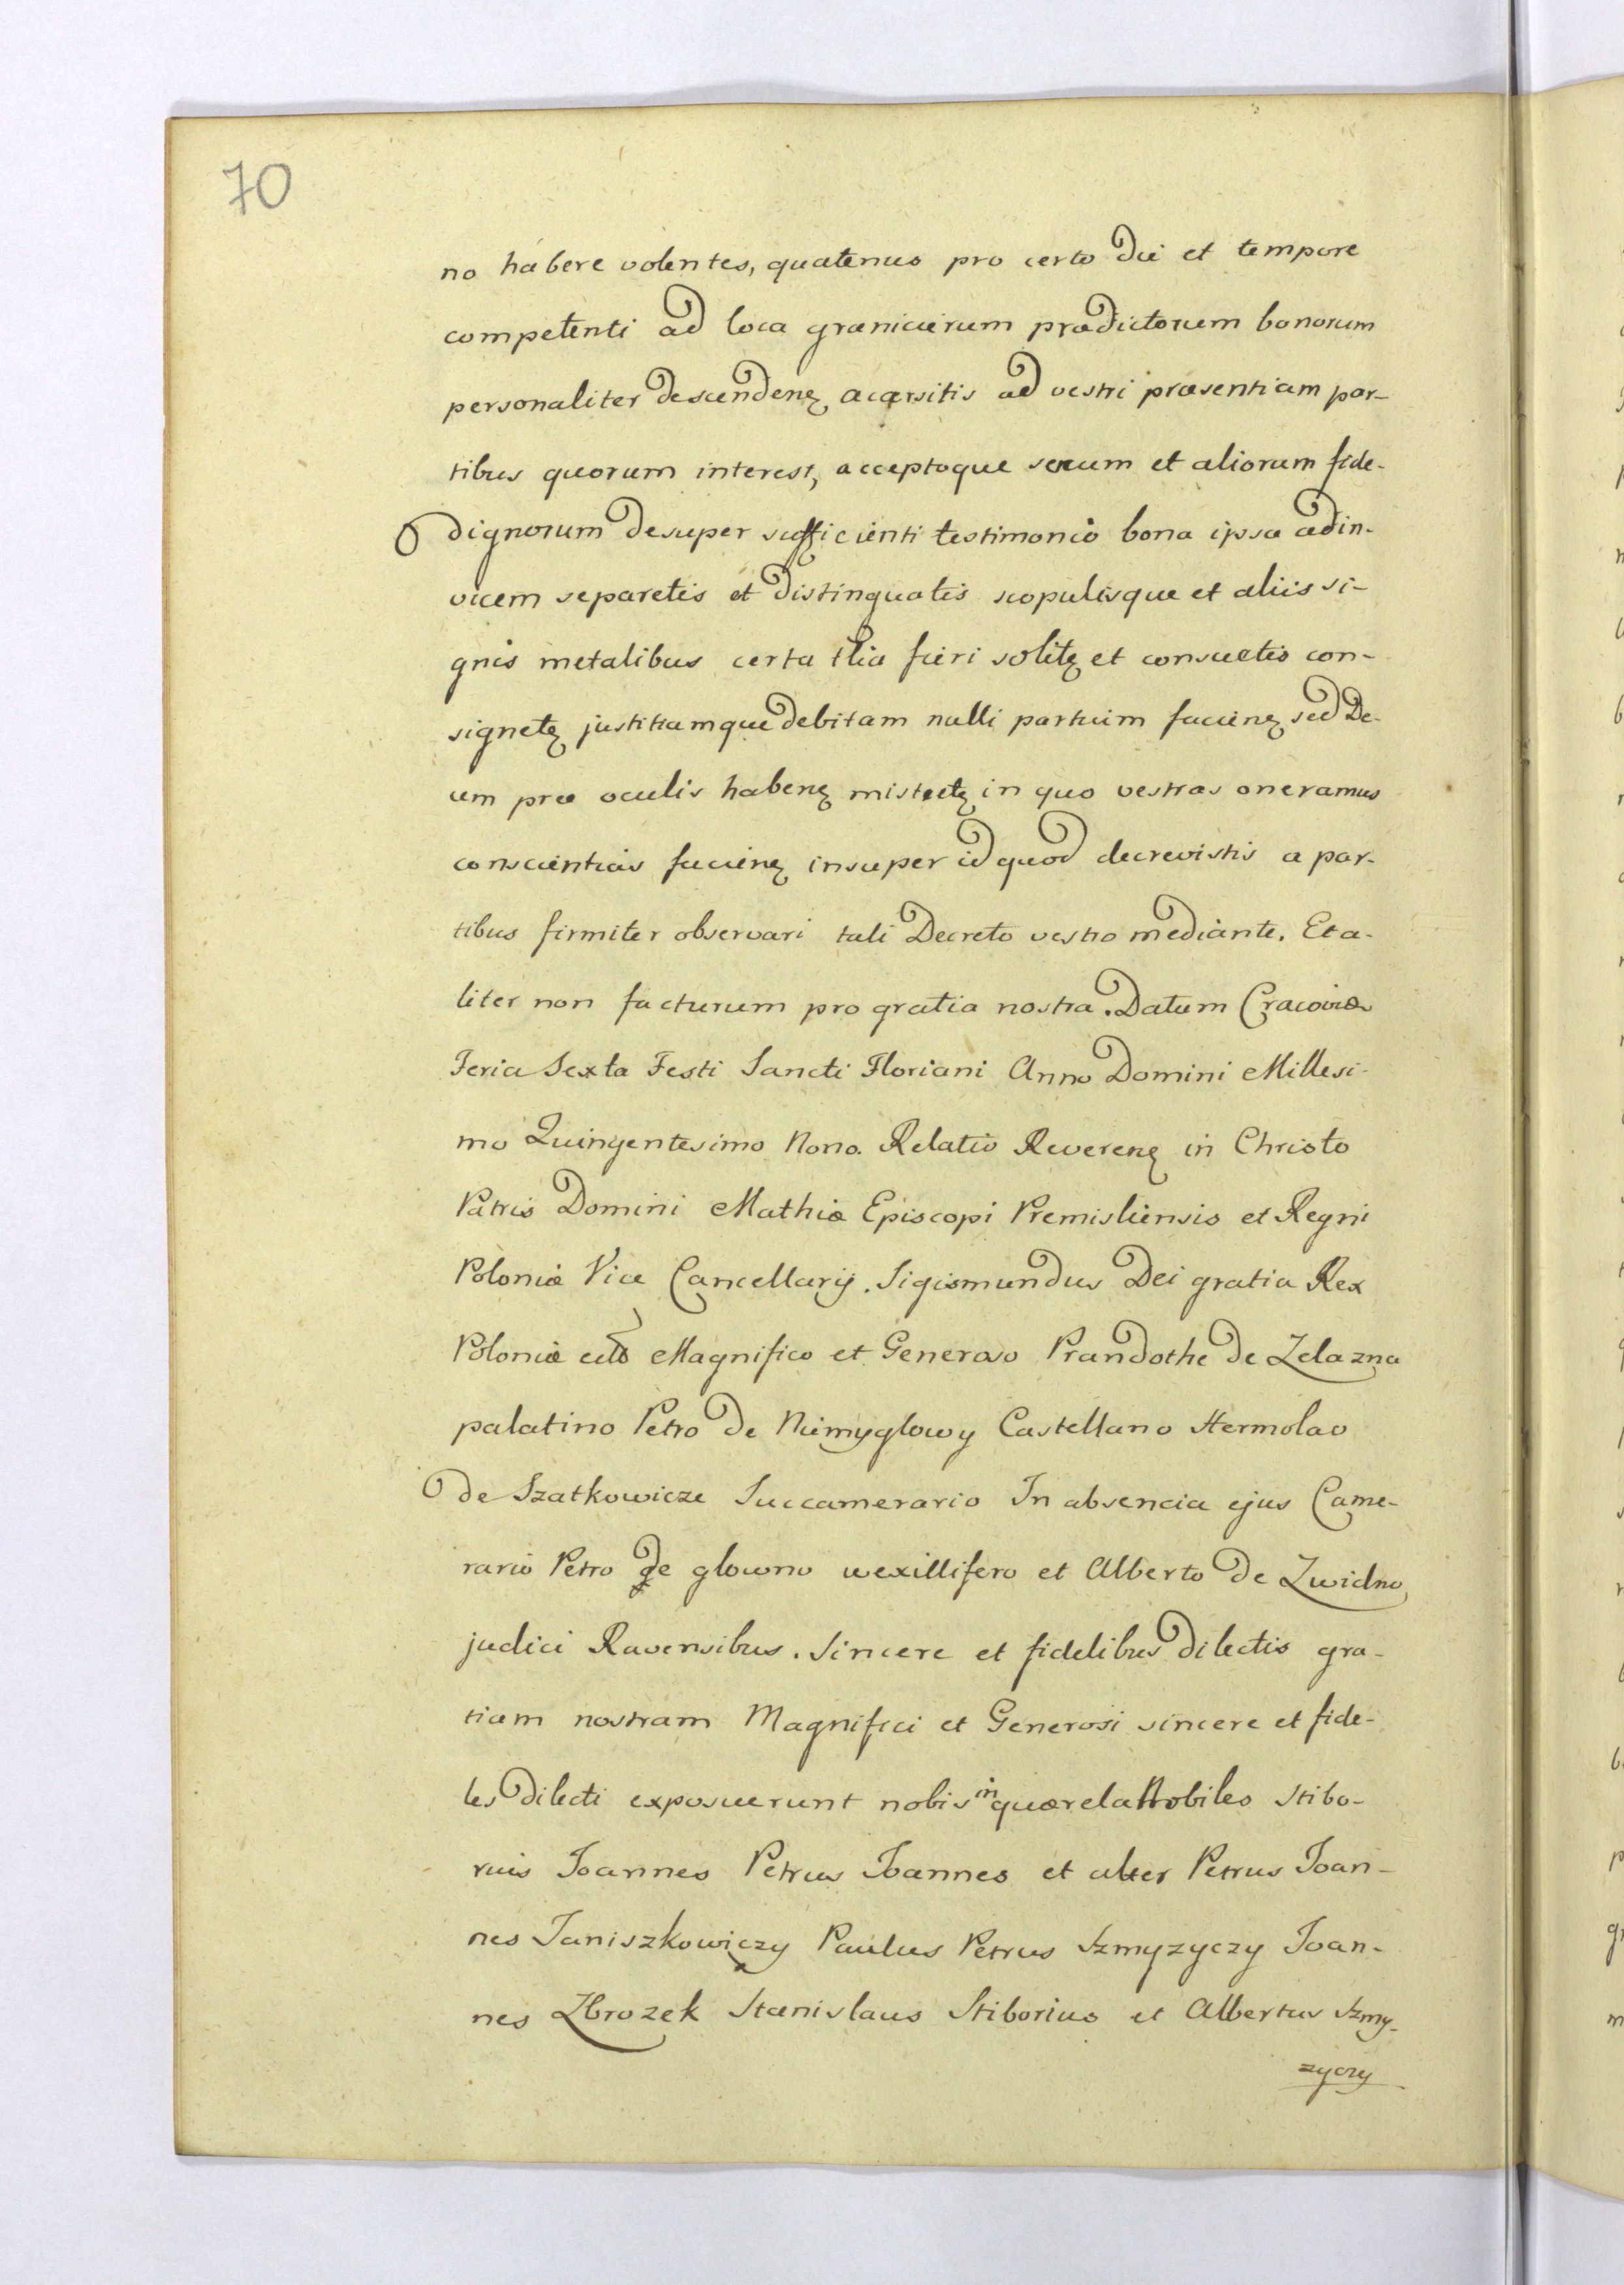 70
no habere volentes, quatenus pro certo die et tempore
competenti ad loca granicierum prædictorum bonorum
personaliter descendenꝫ acersitis ad vestri præsentiam par-
tibus quorum interest, acceptoque senum et aliorum fide-
dignorum desuper sufficienti testimonio bona ipsa adin-
vicem separetis et distinguatis scopulisque et aliis si-
gnis metalibus certa tlia fieri solitꝫ et consuetis con-
signetꝫ justitiamque debitam nulli partium facienꝫ sed De-
um præ oculis habenꝫ in quo vestras oneramus
conscientias facienꝫ insuper id quod decrevistis a par-
tibus firmiter observari tali Decreto vestro mediante. Et a-
liter non facturum pro gratia nostra. Datum Cracoviæ
Feria Sexta Festi Sancti Floriani Anno Domini Millesi-
mo Quingentesimo Nono. Relatio Reverenꝫ in Christo
Patris Domini Mathiæ Episcopi Premisliensis et Regni
Poloniæ Vice Cancellarij. Sigismundus Dei gratia Rex
Poloniæ Magnifico et Generoso Prandothe de Zelazna
palatino Petro de Niemyglowy Castellano Hermolao
de Szatkowicze Succamerario In absencia ejus Came-
rario Petro de glowno wexillifero et Alberto de Zwidno
judici Ravensibus. Sincere et fidelibus dilectis gra-
tiam nostram Magnifici et Generosi sincere et fide-
les dilecti exposuerunt nobis in quærela Nobiles Stibo-
rius Joannes Petrus Joannes et alter Petrus Joan-
nes Janiszkowiczy Paulus Petrus Szmyzyczy Joan-
nes Zbrozek Stanislaus Stiborius et Albertus Szmy-
zyczy